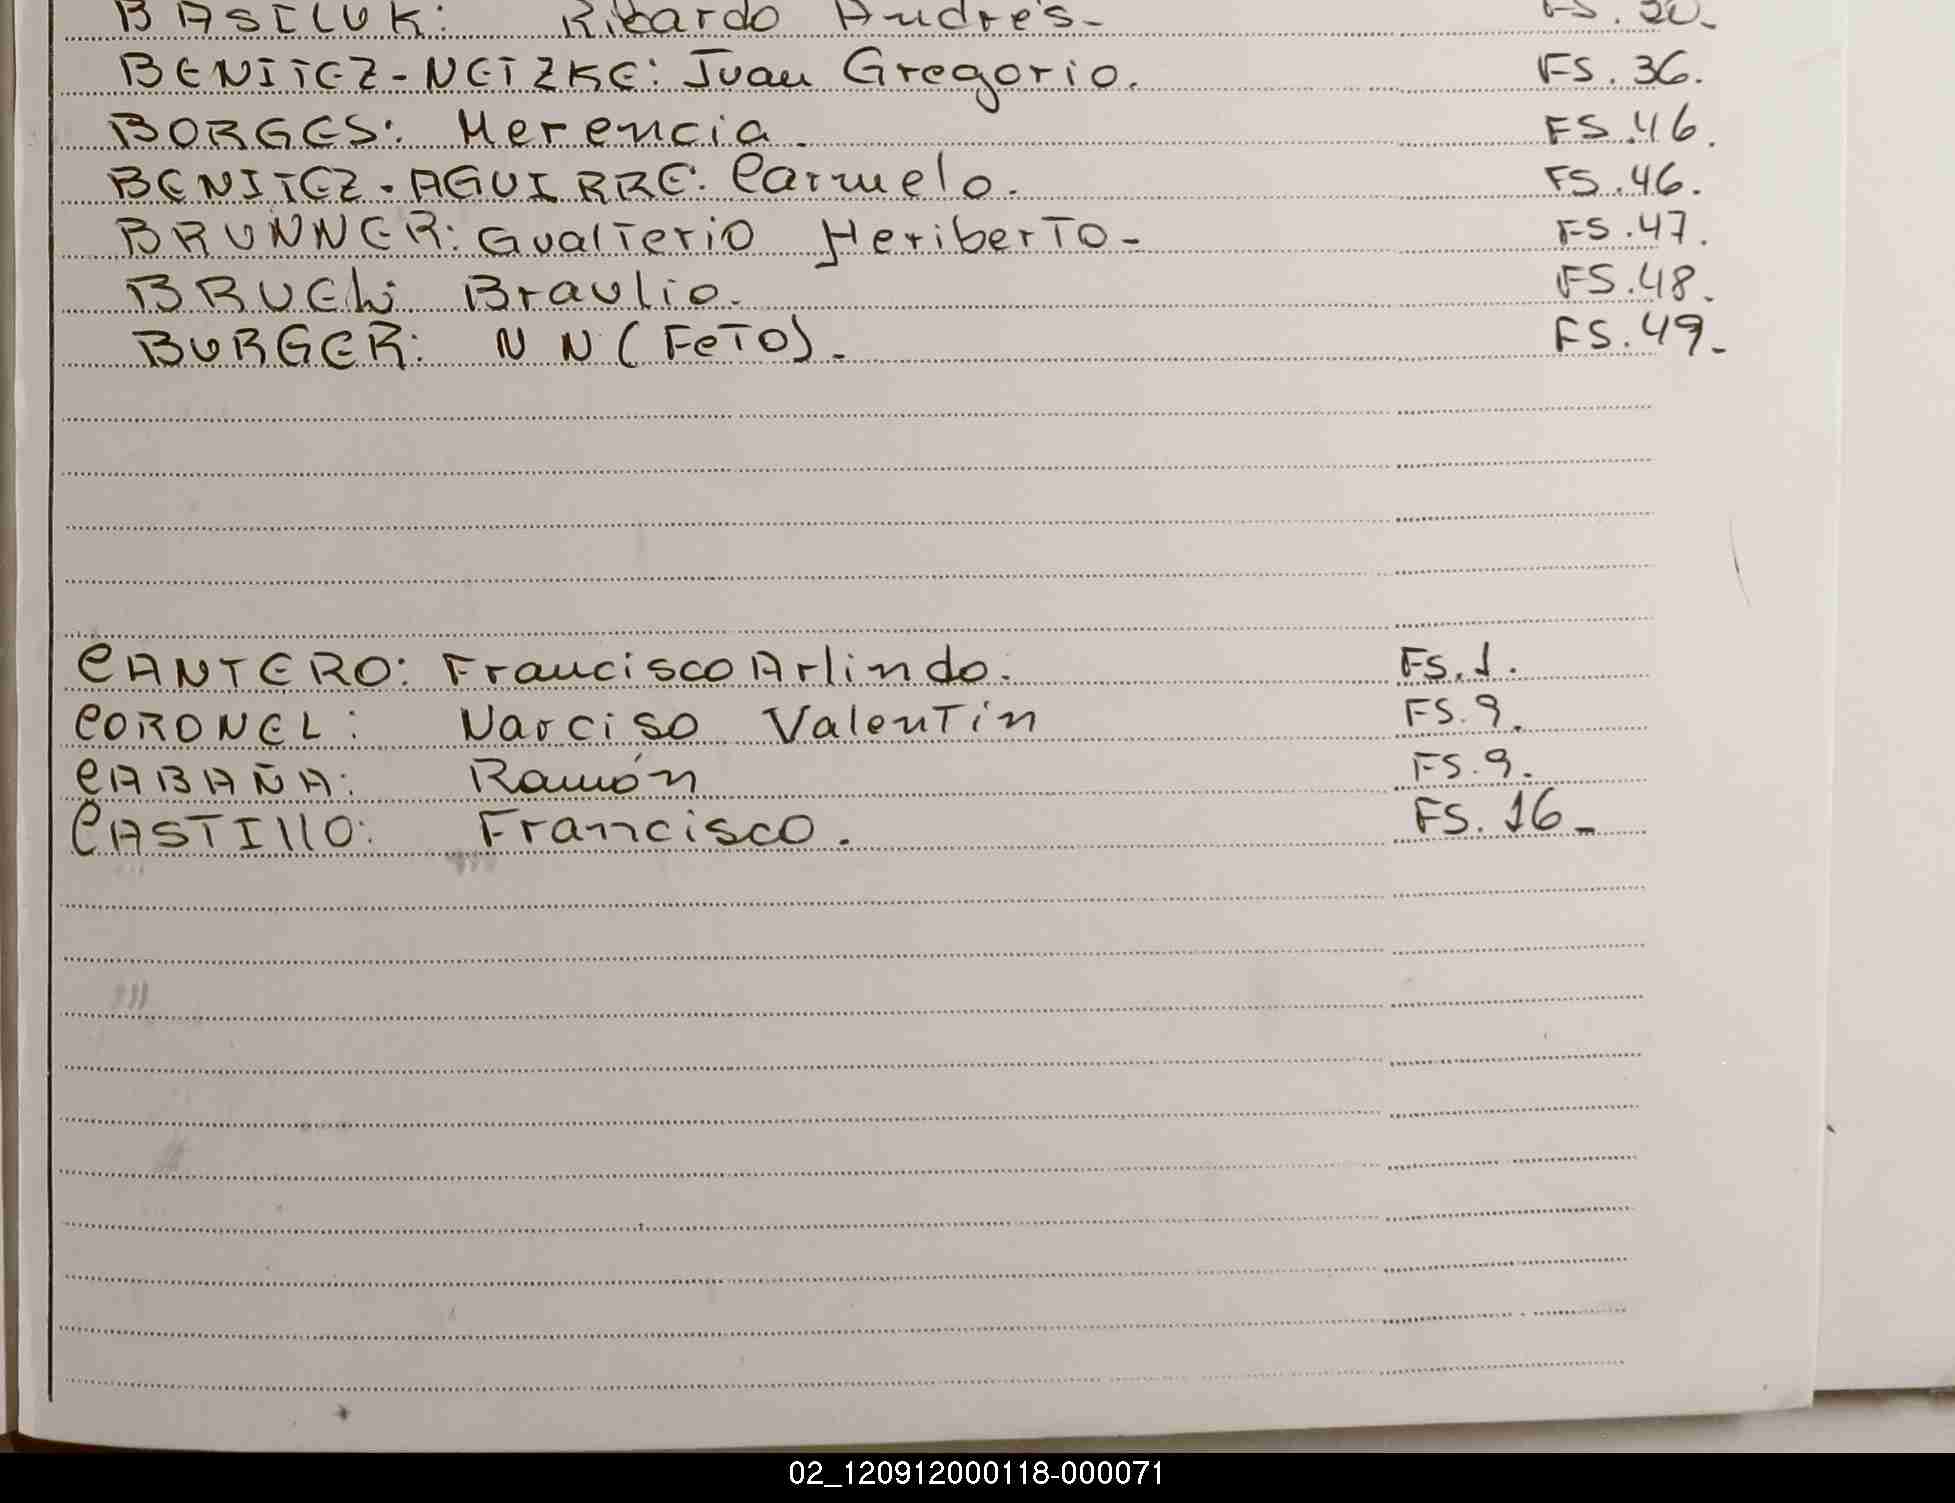 BASILUK: Ricardo Andrés- FS. 20-
BENITEZ-NETZKE: Juan Gregorio. FS. 36.
BORGES: Merencia. FS. 46.
BENITEZ-AGUIRRE: Carmelo. FS. 46.
BRUNNER: Gualterio Heriberto- FS. 47.
BRUCH: Braulio. FS. 48.
BURGER: N N (FeTO). FS. 49-
CANTERO: Francisco Arlindo. FS. 1.
CORONEL: Narciso Valentín FS. 9.
CABAÑA: Ramón FS. 9.
CASTILLO: Francisco. FS. 16-
02_120912000118-000071